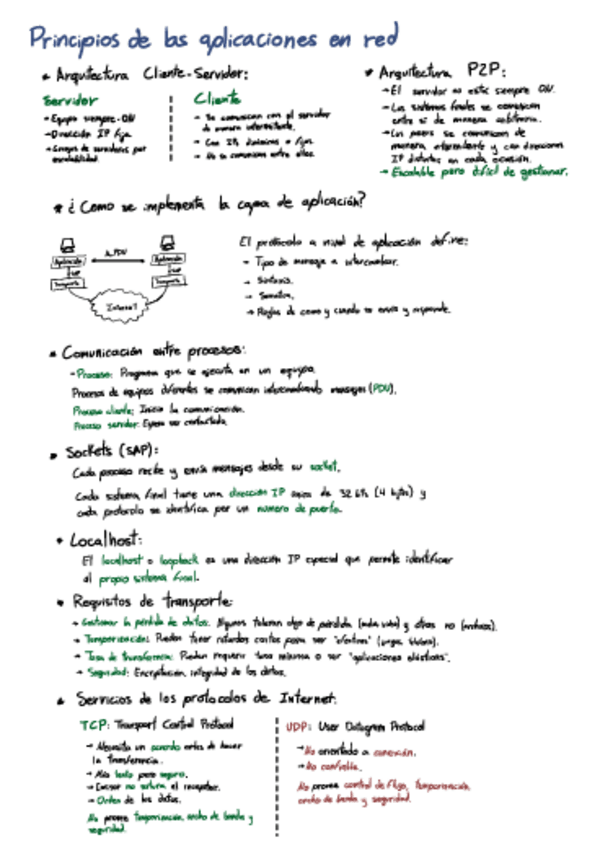 Principios de las aplicaciones en red
* Arquitectura Cliente-Servidor:
Servidor
→ Equipo siempre-ON
→ Dirección IP fija
→ Granjas de servidores por
escalabilidad.
Cliente
→ Se comunican con el servidor
de manera intermitente.
→ Con IPs dinámicas o fijas.
→ No se comunican entre ellos.
* Arquitectura P2P:
→ El servidor no está siempre ON.
→ Los sistemas finales se comunican
entre sí de manera arbitraria.
→ Los peers se comunican de
manera intermitente y con direcciones
IP distintas en cada ocasión.
→ Escalable pero difícil de gestionar.
* ¿Como se implementa la capa de aplicación?
Aplicación
A_PDU
Aplicación
Transporte
Transporte
Internet
El protocolo a nivel de aplicación define:
→ Tipo de mensaje a intercambiar.
→ Sintaxis.
→ Semántica.
→ Reglas de como y cuando se envía y responde.
* Comunicación entre procesos:
→ Proceso: Programa que se ejecuta en un equipo.
Procesos de equipos diferentes se comunican intercambiando mensajes (PDU).
Proceso cliente: Inicia la comunicación.
Proceso servidor: Espera ser contactado.
* Sockets (SAP):
Cada proceso recibe y envía mensajes desde su socket.
Cada sistema final tiene una dirección IP única de 32 bits (4 bytes) y
cada protocolo se identifica por un número de puerto.
* Localhost:
El localhost o loopback es una dirección IP especial que permite identificar
al propio sistema final.
* Requisitos de transporte:
→ Gestionar la pérdida de datos: Algunos toleran algo de pérdida (audio, video) y otras no (archivos).
→ Temporización: Pueden tener retardos cortos para ser "efectivos"
→ Tasa de transferencia: Pueden requerir tasa mínima o ser "aplicaciones elásticas".
→ Seguridad: Encriptación, integridad de los datos.
* Servicios de los protocolos de Internet:
TCP: Transport Control Protocol
→ Necesita un acuerdo antes de hacer
la transferencia.
→ Más lento pero seguro.
→ Emisor no satura el receptor.
→ Orden de los datos.
No provee temporización, ancho de banda y
seguridad.
UDP: User Datagram Protocol
→ No orientado a conexión.
→ No confiable.
No provee control de flujo, temporización,
ancho de banda y seguridad.